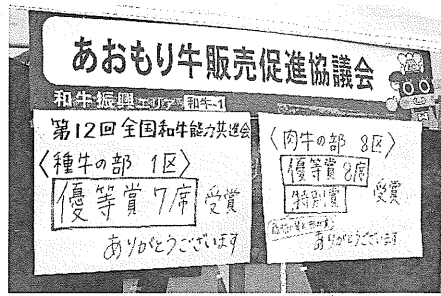 あおもり牛販売促進協議会
和牛振興エリア 和牛-1
第12回全国和牛能力共進会
〈種牛の部 1区〉
優等賞7席 受賞
ありがとうございます
〈肉牛の部 8区〉
優等賞8席
特別賞 受賞
ありがとうございます